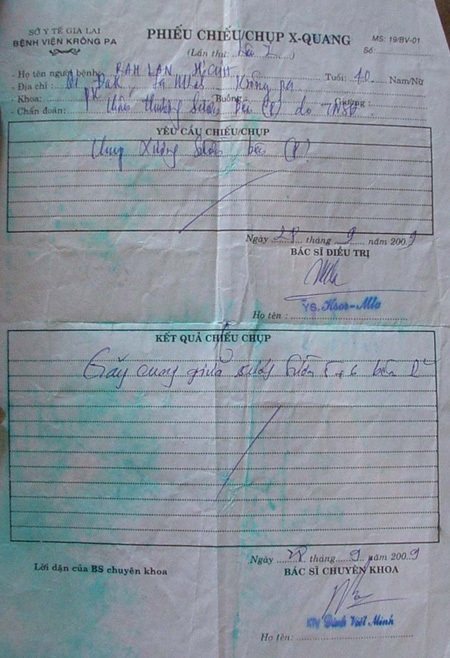 SỞ Y TẾ GIA LAI
BỆNH VIỆN KRÔNG PA
PHIẾU CHIẾU/CHỤP X-QUANG
MS: 19/BV-01
(Lần thứ: ) Số:
- Họ tên người bệnh: RAH LAN H' Tuổi: 10 Nam/Nữ
- Địa chỉ: Krông pa
- Khoa: PK Buồng: Giường:
- Chẩn đoán: Chấn thương sườn bên (P) do TNSH
YÊU CẦU CHIẾU/CHỤP
Chụp Xương sườn bên (P)
Ngày 28 tháng 9 năm 2009
BÁC SĨ ĐIỀU TRỊ
YS. Ksor-Mlo
Họ tên:
KẾT QUẢ CHIẾU CHỤP
Gãy cung giữa xương sườn 5 + 6 bên P
Ngày 28 tháng 9 năm 2009
Lời dặn của BS chuyên khoa
BÁC SĨ CHUYÊN KHOA
Đinh Viết Minh
Họ tên: